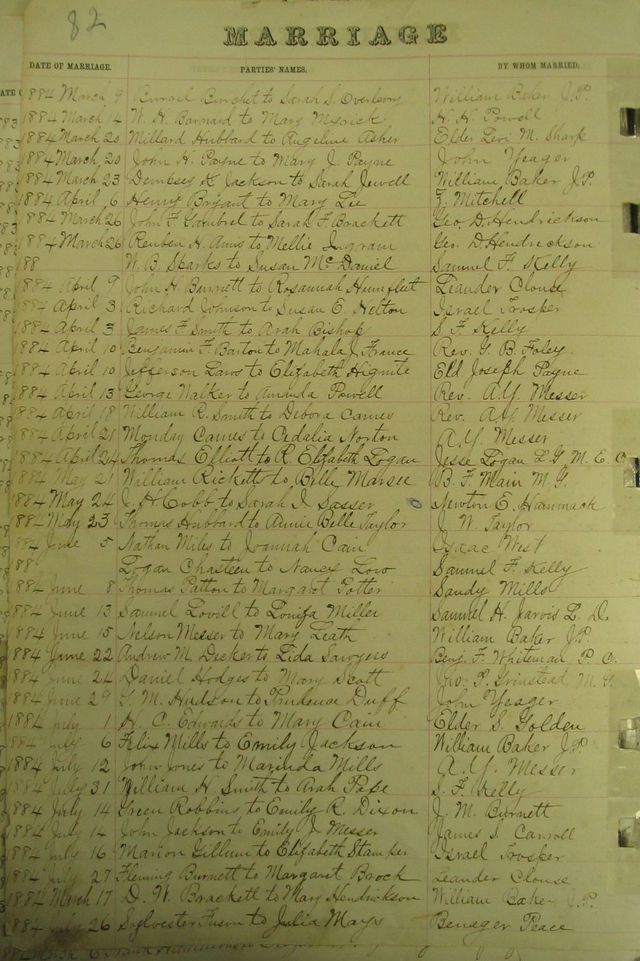 82
MARRIAGE
DATE OF MARRIAGE. PARTIES' NAMES. BY WHOM MARRIED.
1884 March 9 Burchet to Sarah S. William Baker J.P.
1884 March 4 W. H. Barnard to Mary H. H. Powell
1884 March 20 Millard Hubbard to Angeline Asher Elder Levi M. Sharp
1884 March 20 John H. Payne to Mary J. Payne John Yeager
1884 March 23 Dempsey K. Jackson to Sarah Jewell William Baker J.P.
1884 April 6 Henry Bryant to Mary Lee Z. Mitchell
1884 March 26 John F. Gambrel to Sarah F. Brackett Geo. D. Hendrickson
1884 March 26 Reuben H. Amis to Mellie Ingram Geo. D. Hendrickson
188 W. B. Sparks to Susan McDaniel Samuel F. Kelly
1884 April 9 John H. Burnett to Rosannah Humfleet Leander Clouse
1884 April 3 Richard Johnson to Susan E. Helton Israel Trosper
1884 April 3 James F. Smith to Arah Bishop S. F. Kelly
1884 April 10 Benjamin F. Barton to Mahala J. France Rev. G. B. Foley.
1884 April 10 Jefferson Laws to Elizabeth Hignite Eld Joseph Payne
1884 April 13 George Walker to Amanda Powell Rev. A.Y. Messer
1884 April 18 William R. Smith to Debora Carnes Rev. A.Y. Messer
1884 April 21 Monday Carnes to Cedalia Norton A.Y. Messer
1884 April 24 Thomas Elliott to R. Elizabeth Logan Jesse Logan L.G M. E. C
1884 May 21 William Ricketts to Belle Marsee B. F. Main M. G.
1884 May 24 J. H. Cobb to Sarah J. Sasser Newton E. Hammack
1884 May 23 Thomas Hubbard to Annie Belle Taylor J. W. Taylor
1884 June 5 Nathan Miles to Joannah Cain Isaac West
188 Logan Chasteen to Nancy Low Samuel F. Kelly
1884 June 8 Thomas Patton to Margaret Potter Sandy Mills
1884 June 13 Samuel Lovill to Louisa Miller Samuel H. Jarvis L. D.
1884 June 15 Nelson Messer to Mary Leath William Baker J.P.
1884 June 22 Andrew M. Decker to Lida Sawyers Benj. F. Whiteman P. C.
1884 June 24 Daniel Hodges to Mary Scott Geo. P. Grinstead M. G
1884 June 29 G. M. Hudson to Prudence Duff John Yeager
1884 July 1 H. C. Edwards to Mary Cain Elder S. Golden
1884 July 6 Felix Mills to Emily Jackson William Baker J.P.
1884 July 12 John Jones to Marinda Mills A.Y. Messer
1884 July 31 William H. Smith to Arah Pape S. F. Kelly
1884 July 14 Green Robbins to Emily R. Dixon J. M. Burnett
1884 July 14 John Jackson to Emily J. Messer James S. Carroll
1884 July 16 Marion Gillum to Elizabeth Stamper Israel Trosper
1884 July 27 Fleming Burnett to Margaret Brock Leander Clouse
1884 March 17 D. W. Brackett to Mary Hendrickson William Baker J.P.
1884 July 26 Sylvester Fuson to Julia Mays Benager Peace